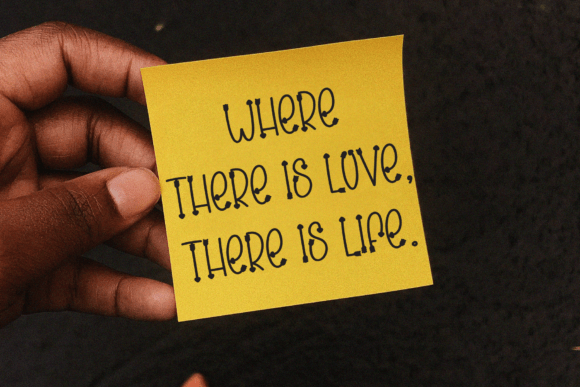 WHERE
THERE IS LOVE,
THERE IS LIFE.